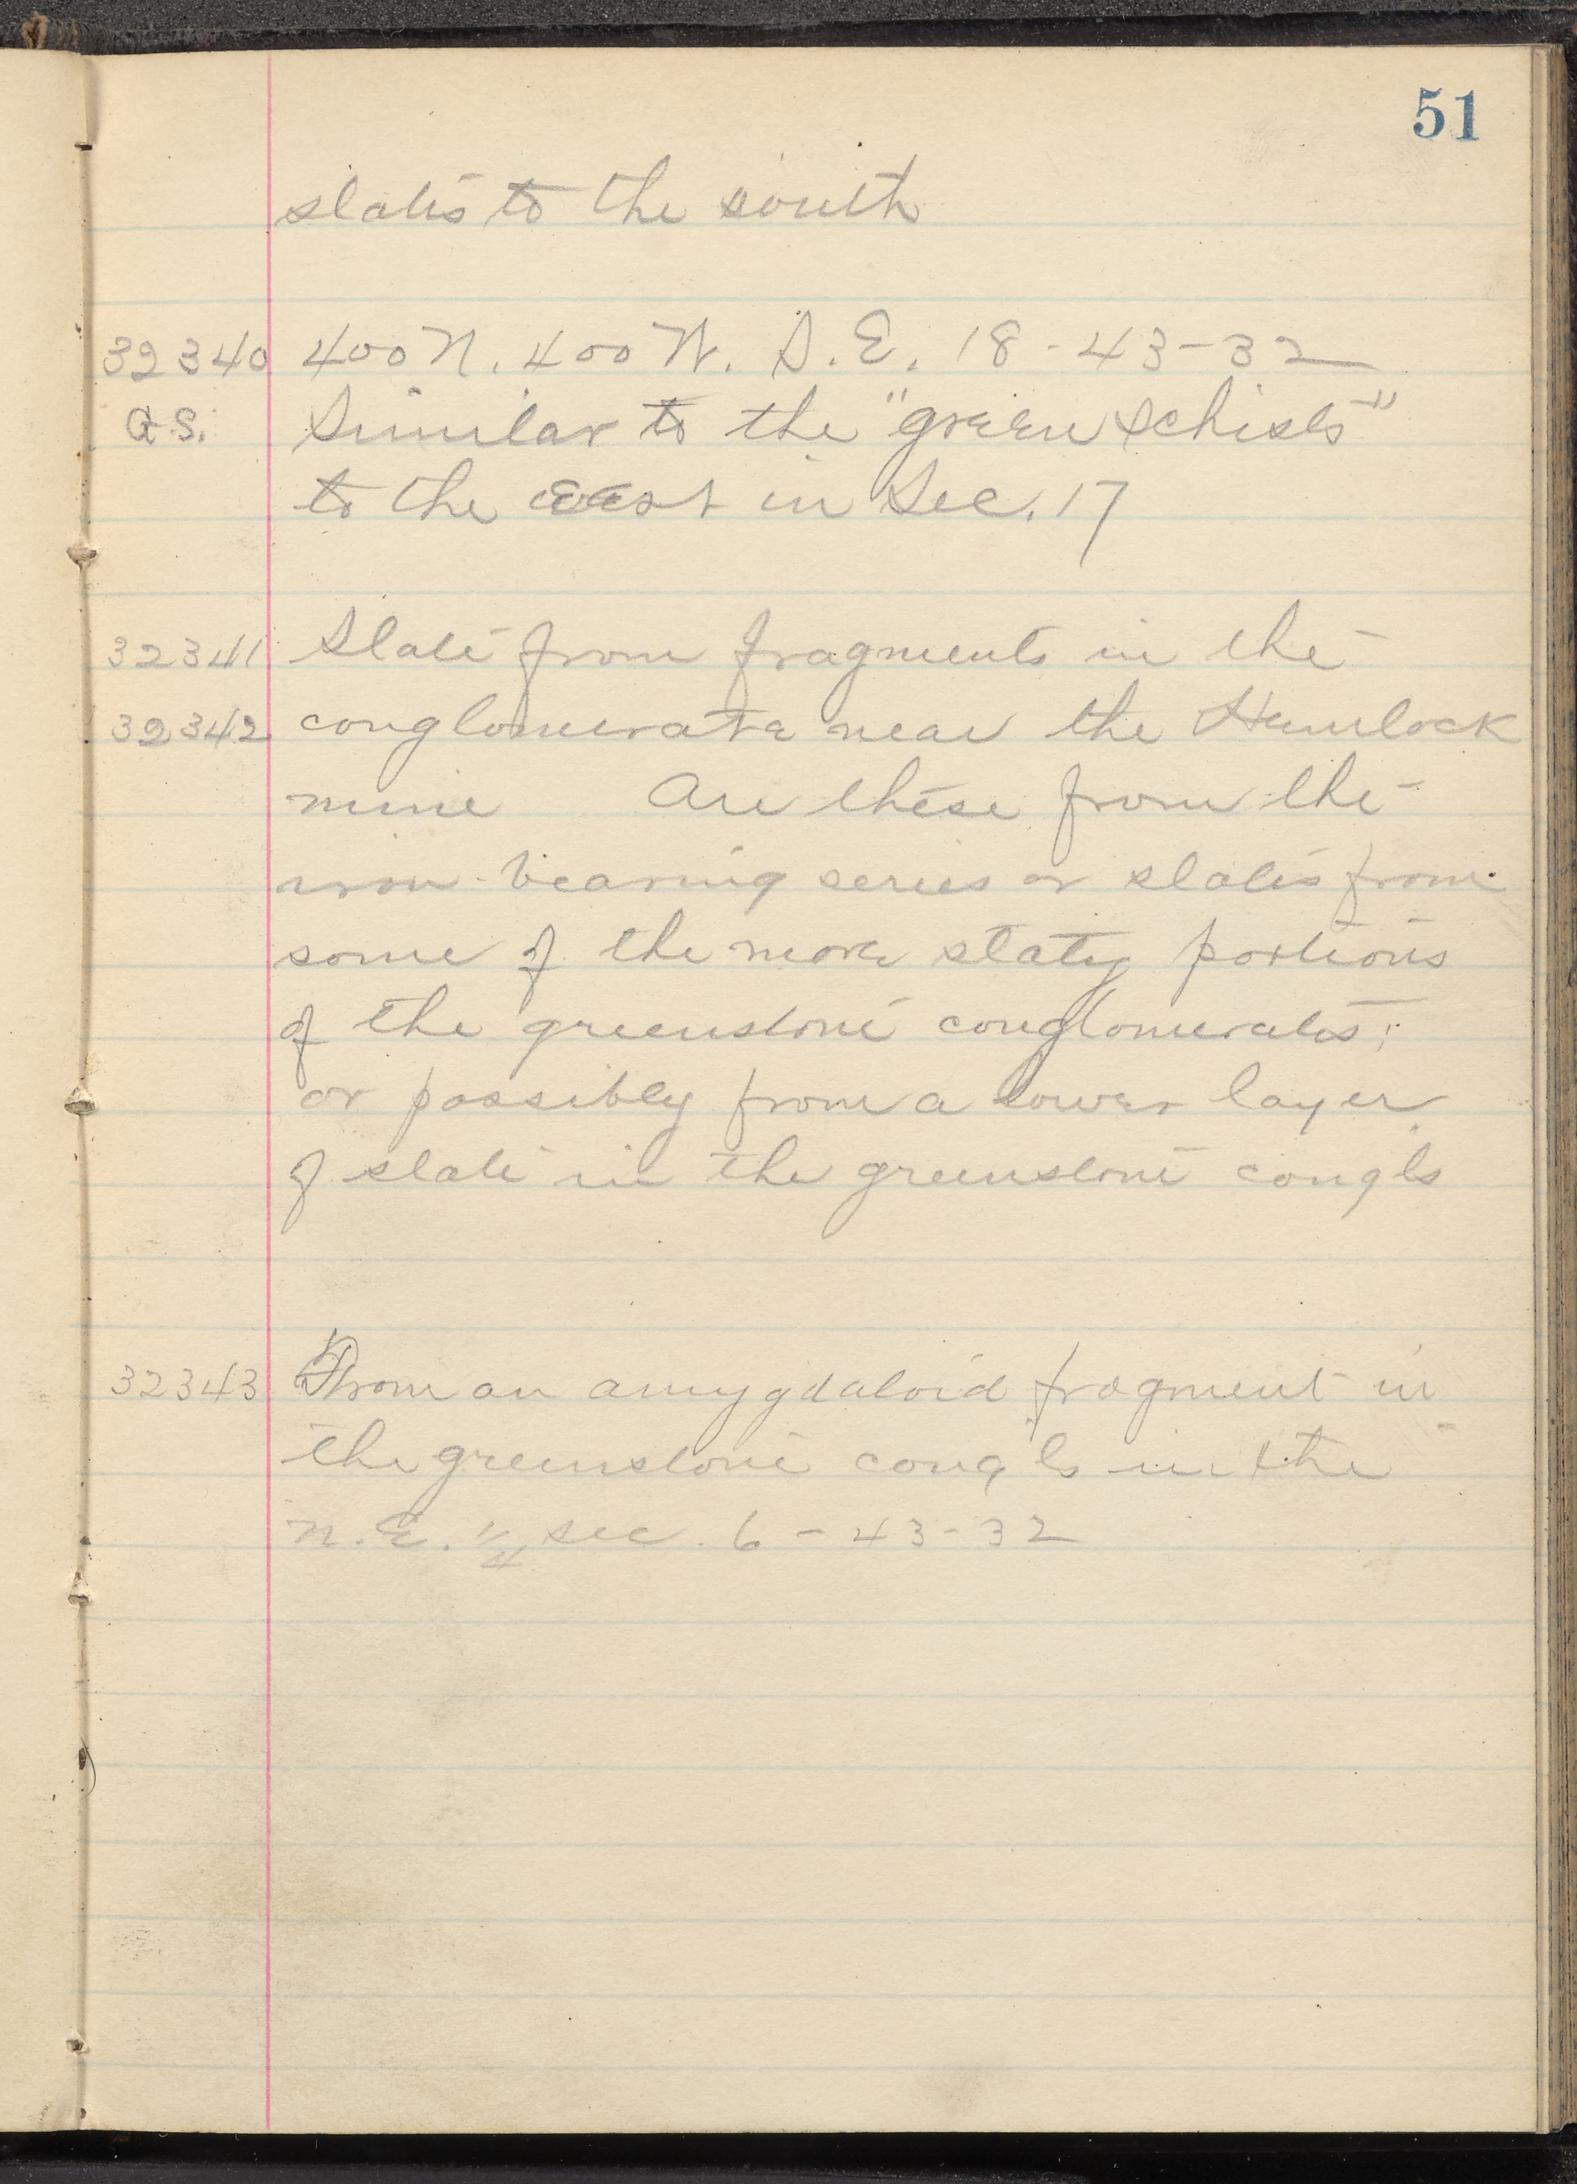 51
slates to the south
32340 400 N. 400 W. S.E. 18-43-32
G.S. Similar to the "green schists"
to the East in Sec. 17
32341 Slate from fragments in the
32342 conglomerate near the Hemlock
mine Are these from the
iron-bearing series or slates from
some of the more slaty portions
of the greenstone conglomerates;
or possibly from a lower layer
of slate in the greenstone congls
32343 From an amygdaloid fragment in
the greenstone congls in the
N.E. 1/4 sec. 6-43-32